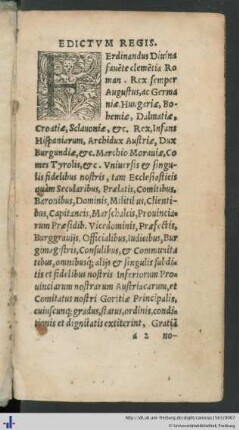 EDICTVM REGIS.
FErdinandus Diuina
fauẽte clemẽtia Ro
man. Rex semper
Augustus, ac Germa
niæ. Hungariæ, Bo-
hemiæ, Dalmatiæ,
Croatiæ, Sclauoniæ, &c. Rex, Infans
Hispaniarum, Archidux Austriæ, Dux
Burgundiæ, &c. Marchio Morauiæ, Co-
mes Tyrolis, &c. Vniuersis & singu-
lis fidelibus nostris, tam Ecclesiasticis
quàm Secularibus, Prælatis, Comitibus,
Baronibus, Dominis, Militibus, Clienti-
bus, Capitaneis, Marschalcis, Prouincia-
rum Præsidib. Vicedominis, Præfectis,
Burggrauijs, Officialibus, Iudicibus, Bur
gimagistris, Consulibus, & Communita
tibus, omnibusq; alijs & singulis subdi-
tis et fidelibus nostris Inferiorum Pro-
uinciarum nostrarum Austriacarum, et
Comitatus nostri Goritiæ Principalis,
cuiuscunq; gradus, status, ordinis, condi
tionis et dignitatis extiterint, Gratiã
a 2 no-
© Universitätsbibliothek Freiburg